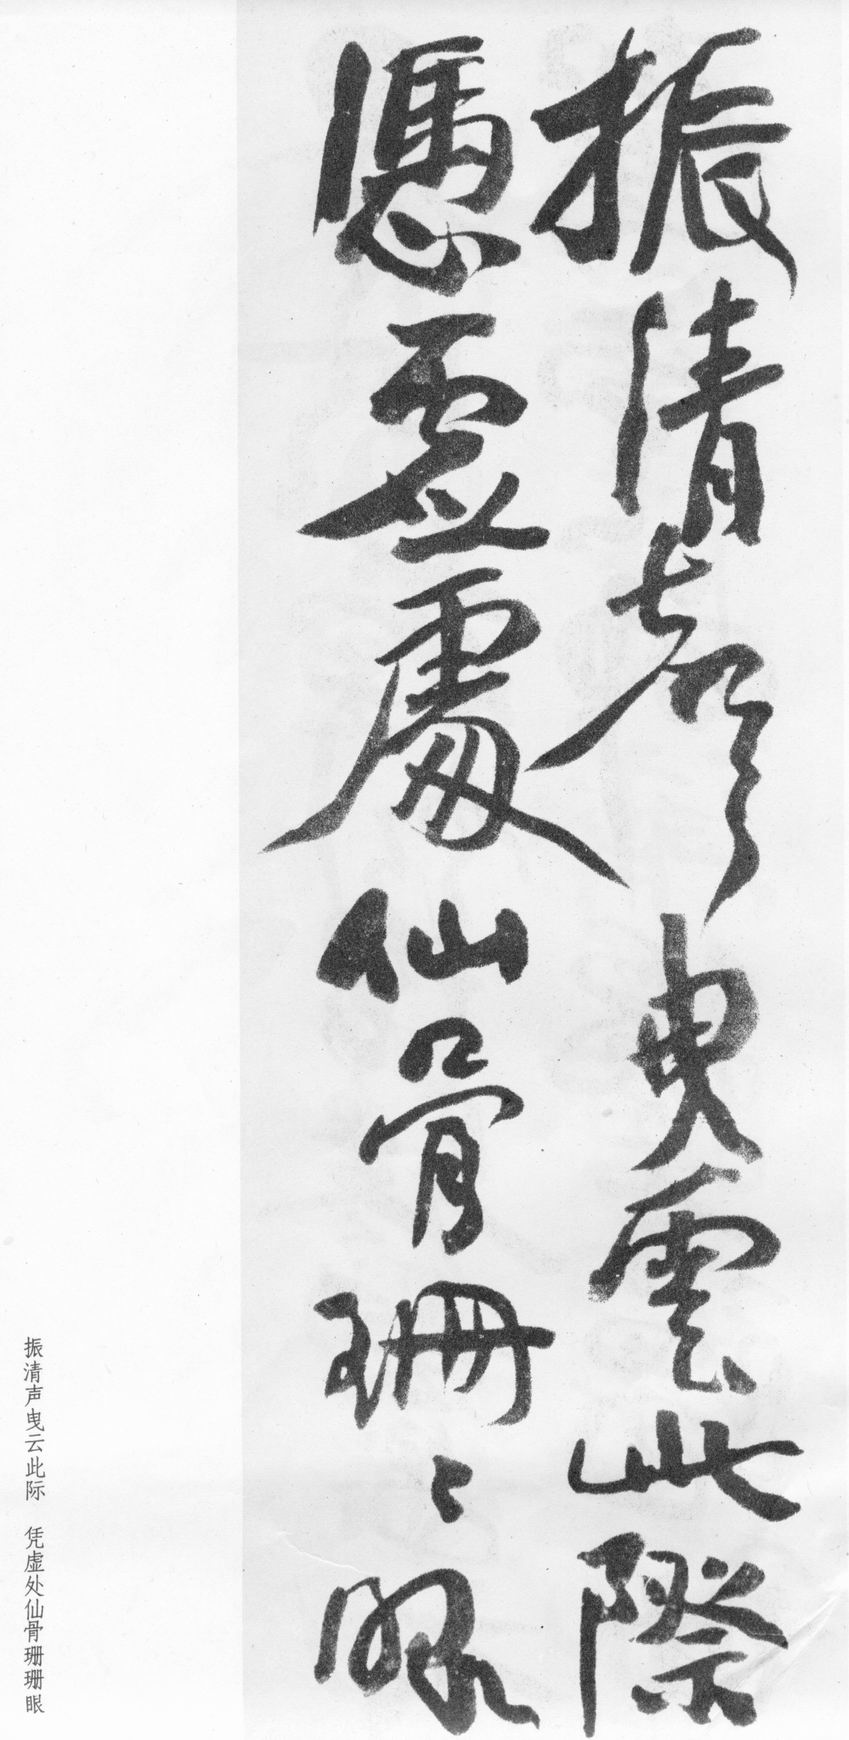 振清聲曳雲此際
憑虛處仙骨珊〻眼
振清声曳云此际　凭虚处仙骨珊珊眼